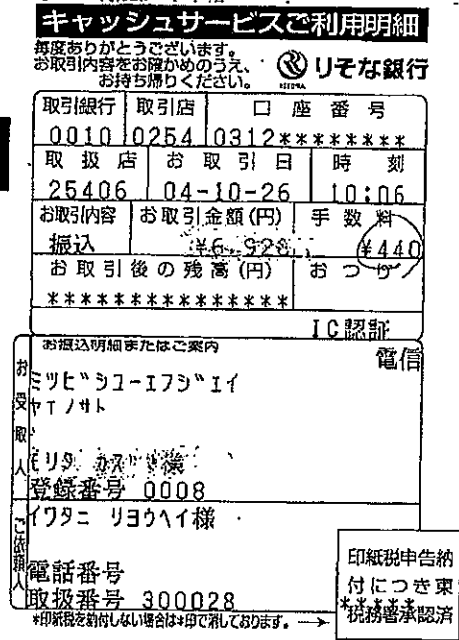 キャッシュサービスご利用明細
毎度ありがとうございます。
お取引内容をお確かめのうえ、
お持ち帰りください。
りそな銀行
取引銀行 取引店 口座番号
0010 0254 0312********
取扱店 お取引日 時刻
25406 04-10-26 10:06
お取引内容 お取引金額(円) 手数料
振込 ¥6,928 ¥440
お取引後の残高(円) おつり
****************
IC認証
お振込明細またはご案内
電信
お受取人
ミツビシユーエフジエイ
ヤエノサト
モリタ 様
登録番号 0008
ご依頼人
イワタニ リヨウヘイ様
電話番号
取扱番号 300028
印紙税申告納
付につき東
*****
税務署承認済
*印紙税を納付しない場合は*印で消しております。→